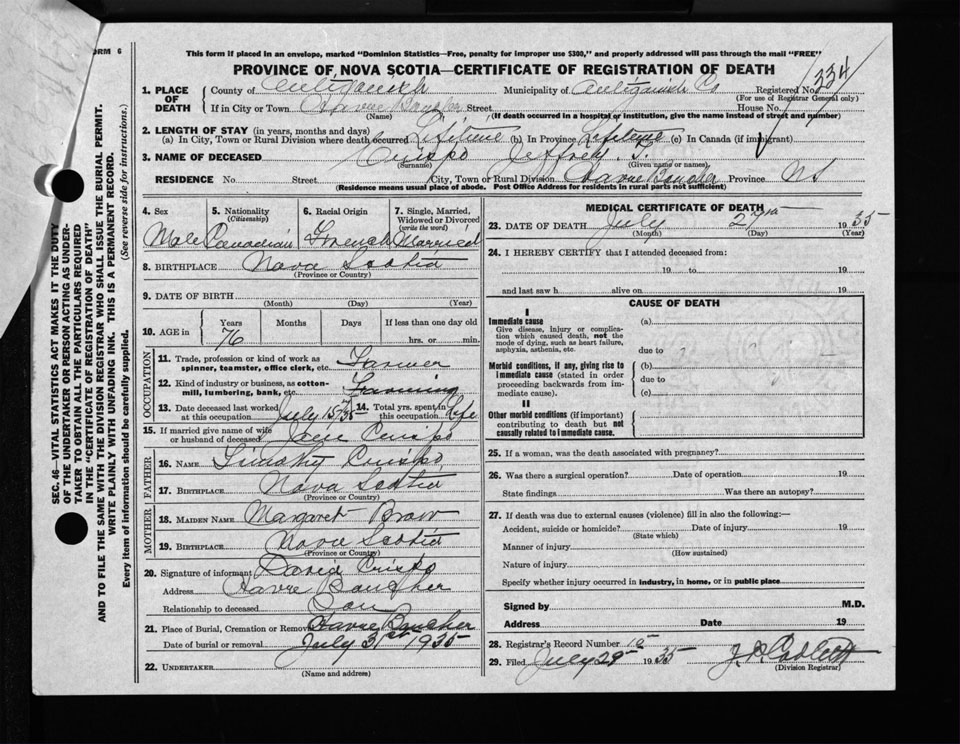 FORM 6
This form if placed in an envelope, marked "Dominion Statistics—Free, penalty for improper use $300," and properly addressed will pass through the mail "FREE"
PROVINCE OF NOVA SCOTIA—CERTIFICATE OF REGISTRATION OF DEATH
334
1. PLACE OF DEATH
County of Antigonish Municipality of Antigonish Co Registered No.
(For use of Registrar General only)
If in City or Town Havre Boucher Street House No.
(Name) (If death occurred in a hospital or institution, give the name instead of street and number)
2. LENGTH OF STAY (in years, months and days)
(a) In City, Town or Rural Division where death occurred Lifetime (b) In Province Lifetime (c) In Canada (if immigrant)
3. NAME OF DECEASED Crispo Jeffrey T.
(Surname) (Given name or names)
RESIDENCE No. Street City, Town or Rural Division Havre Boucher Province NS
(Residence means usual place of abode. Post Office Address for residents in rural parts not sufficient)
4. Sex 5. Nationality (Citizenship) 6. Racial Origin 7. Single, Married, Widowed or Divorced (write the word)
Male Canadian French Married
8. BIRTHPLACE Nova Scotia
(Province or Country)
9. DATE OF BIRTH
(Month) (Day) (Year)
10. AGE in Years Months Days If less than one day old
76 hrs. or min.
OCCUPATION
11. Trade, profession or kind of work as spinner, teamster, office clerk, etc. Farmer
12. Kind of industry or business, as cotton-mill, lumbering, bank, etc. Farming
13. Date deceased last worked at this occupation July 15/35 14. Total yrs. spent in this occupation Life
15. If married give name of wife or husband of deceased Jane Crispo
FATHER
16. NAME Timothy Crispo
17. BIRTHPLACE Nova Scotia
(Province or Country)
MOTHER
18. MAIDEN NAME Margaret
19. BIRTHPLACE Nova Scotia
(Province or Country)
20. Signature of informant David Crispo
Address Havre Boucher
Relationship to deceased Son
21. Place of Burial, Cremation or Removal Havre Boucher
Date of burial or removal July 31st 1935
22. UNDERTAKER
(Name and address)
MEDICAL CERTIFICATE OF DEATH
23. DATE OF DEATH July 27th 1935
(Month) (Day) (Year)
24. I HEREBY CERTIFY that I attended deceased from:
19 to 19
and last saw h alive on 19
CAUSE OF DEATH
I
Immediate cause (a)
Give disease, injury or complication which caused death, not the mode of dying, such as heart failure, asphyxia, asthenia, etc.
due to
Morbid conditions, if any, giving rise to immediate cause (stated in order proceeding backwards from immediate cause).
(b)
due to
(c)
II
Other morbid conditions (if important) contributing to death but not causally related to immediate cause.
25. If a woman, was the death associated with pregnancy?
26. Was there a surgical operation? Date of operation 19
State findings Was there an autopsy?
27. If death was due to external causes (violence) fill in also the following:—
Accident, suicide or homicide? Date of injury 19
(State which)
Manner of injury
(How sustained)
Nature of injury
Specify whether injury occurred in industry, in home, or in public place
Signed by M.D.
Address Date 19
28. Registrar's Record Number 15
29. Filed July 29 1935
(Division Registrar)
SEC. 46—VITAL STATISTICS ACT MAKES IT THE DUTY
OF THE UNDERTAKER OR PERSON ACTING AS UNDERTAKER TO OBTAIN ALL THE PARTICULARS REQUIRED
IN THE "CERTIFICATE OF REGISTRATION OF DEATH"
AND TO FILE THE SAME WITH THE DIVISION REGISTRAR WHO SHALL ISSUE THE BURIAL PERMIT.
WRITE PLAINLY WITH UNFADING INK. THIS IS A PERMANENT RECORD.
Every item of information should be carefully supplied. (See reverse side for instructions.)